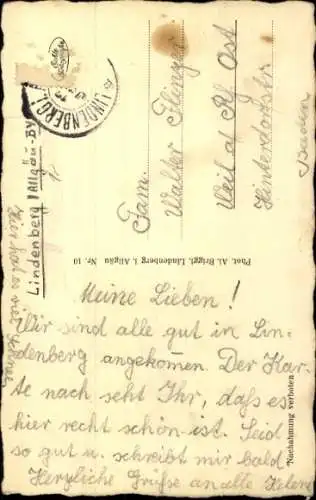 Meine Lieben!
Wir sind alle gut in Lin-
denberg angekomen. Der Kar-
te nach seht Ihr, daß es
hier recht schön ist. Seid
so gut u. schreibt mir bald
Herzliche Grüße an alle Helen
hier hat es viel Schnee
Lindenberg/Allgäu-By
Fam.
Walter Flinger
Weil a/Rh Ost
Hinterdorfstr.
Baden
Phot. Al. Briggl, Lindenberg i. Allgäu Nr. 10
Nachahmung verboten
LINDENBERG